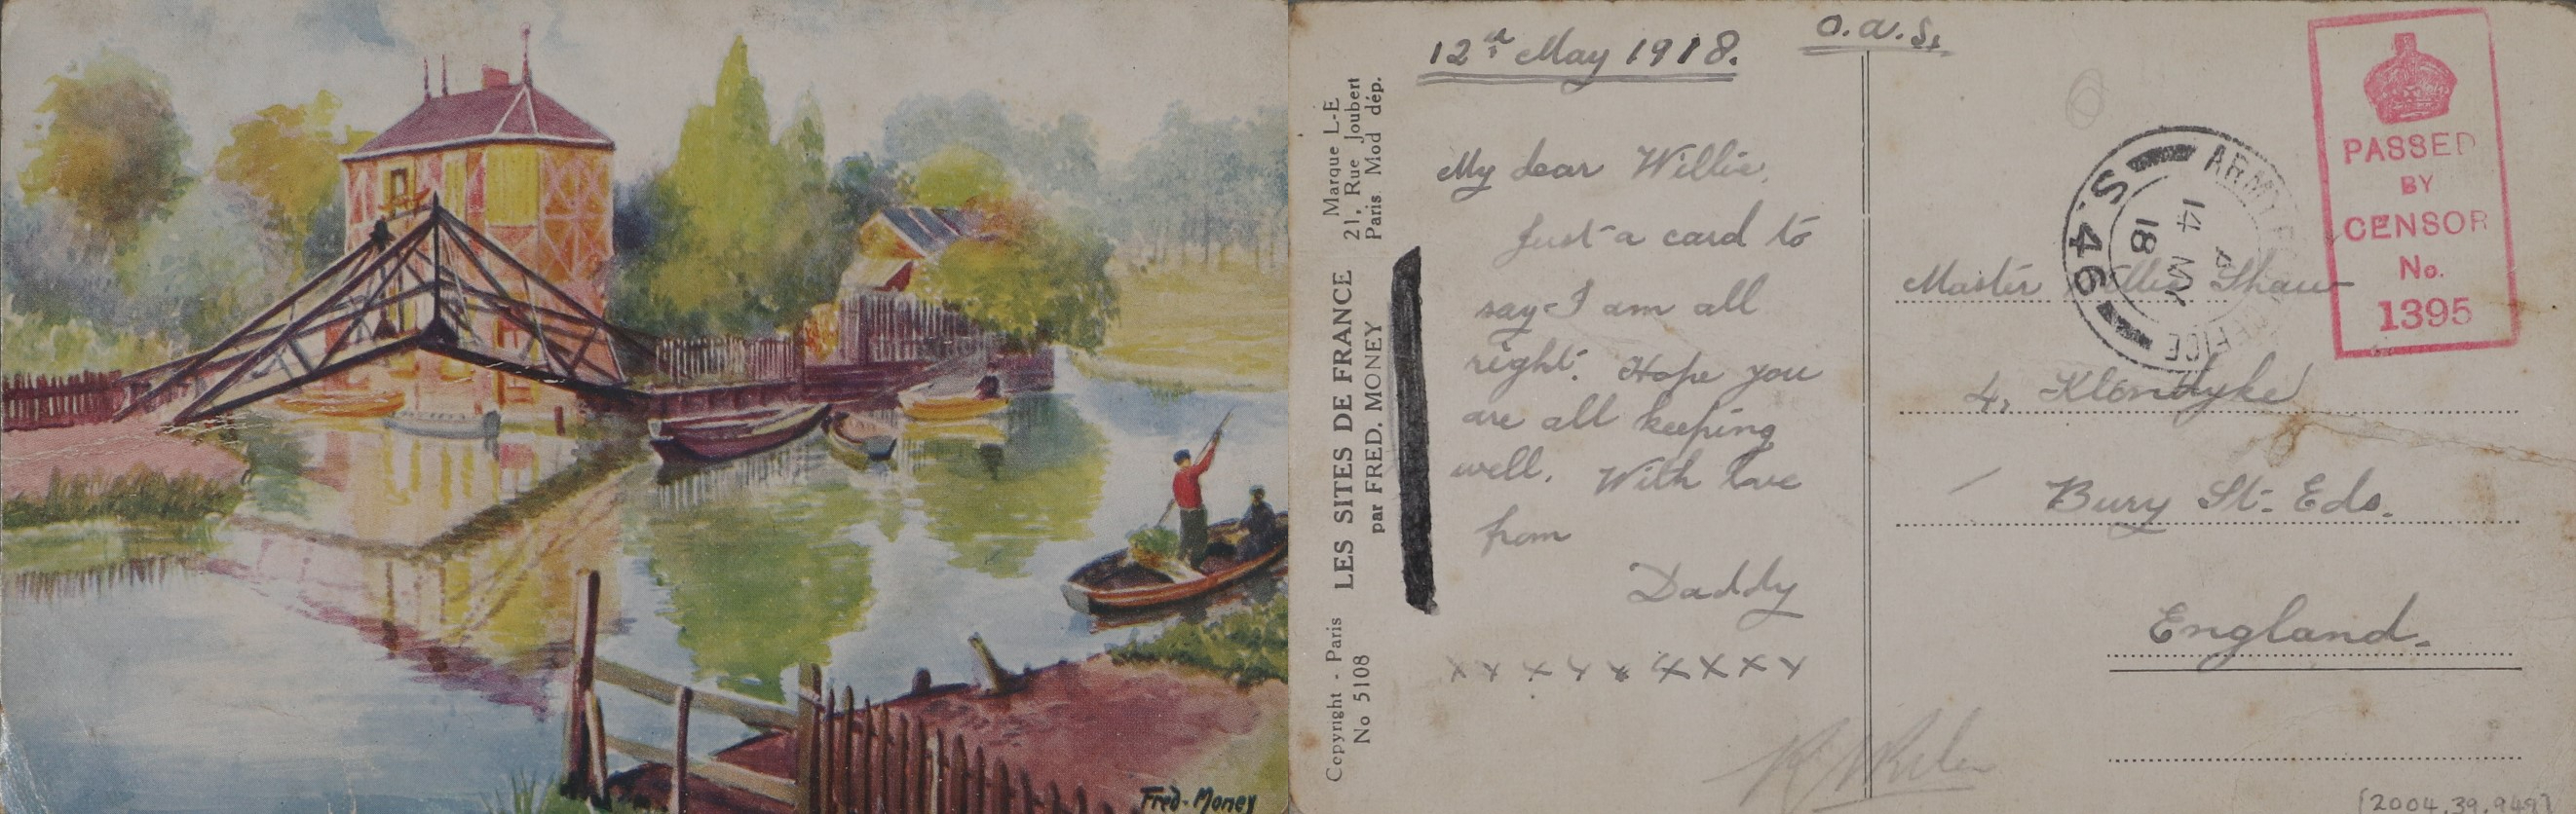 Fred-Money
Copyright - Paris LES SITES DE FRANCE Marque L-E
No 5108 par FRED. MONEY 21, Rue Joubert
Paris. Mod dép.
12th May 1918.
O.A.S.
My dear Willie,
Just a card to
say I am all
right. Hope you
are all keeping
well. With love
from
Daddy
x x x x x x x x x x
Master Willie Shaw
4, Klondyke
Bury St. Eds.
England.
ARMY OFFICE
A
14 MY
18
S.46
PASSED
BY
CENSOR
No.
1395
[2004.39.949]